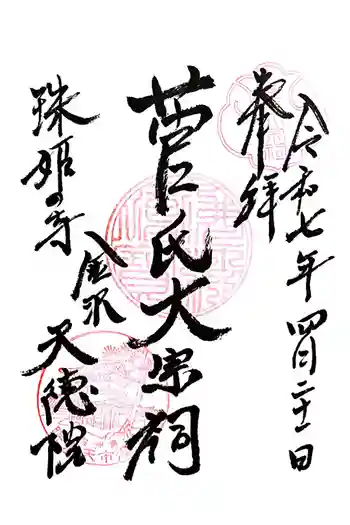 令和七年四月二十一日
奉拝
菅氏大宗祠
珠姫の寺
金沢
天徳院